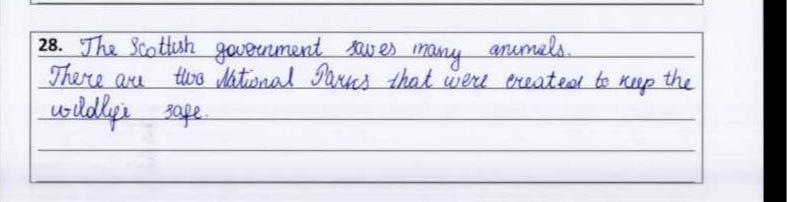 28. The Scottish government saves many animals.
There are two National Parks that were created to keep the
wildlife safe.